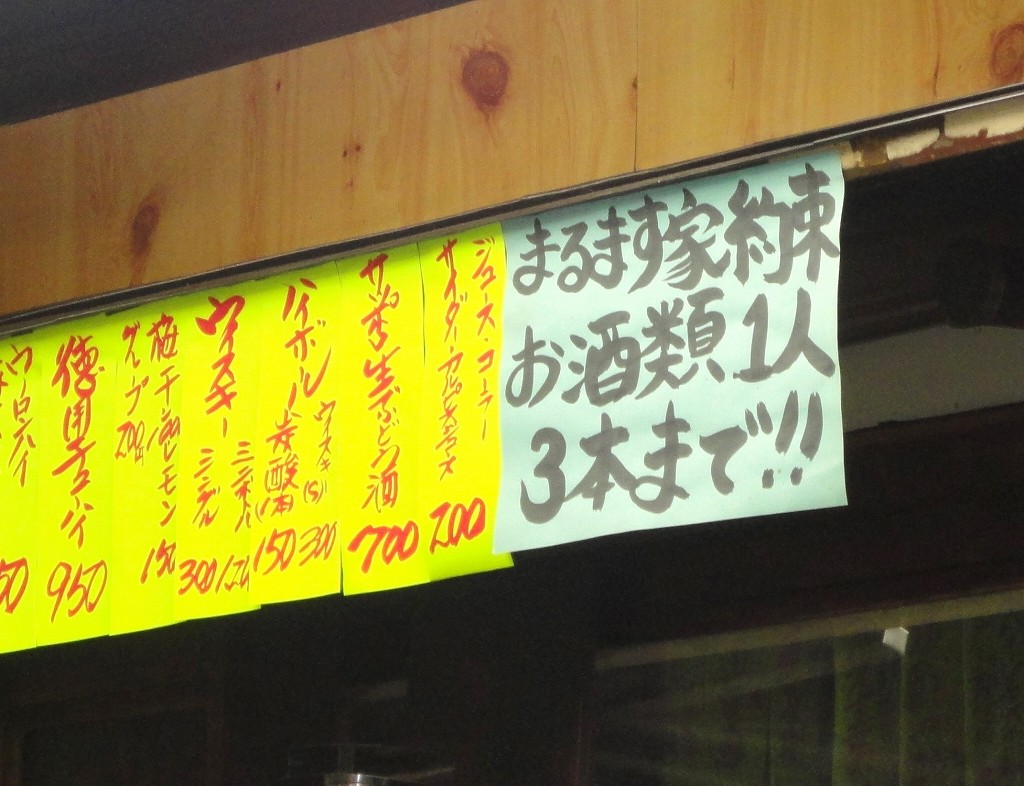 まるます家約束
お酒類1人
3本まで!!
ジュース.コーラー
サイダー
200
サッポロ生ぶどう酒
700
ハイボール
ウイスキー(S) 300
炭酸1本 150
ウイスキー
シングル 300
梅干
レモン 150
グレープ 200
徳用
ハイ
950
ウーロンハイ
50